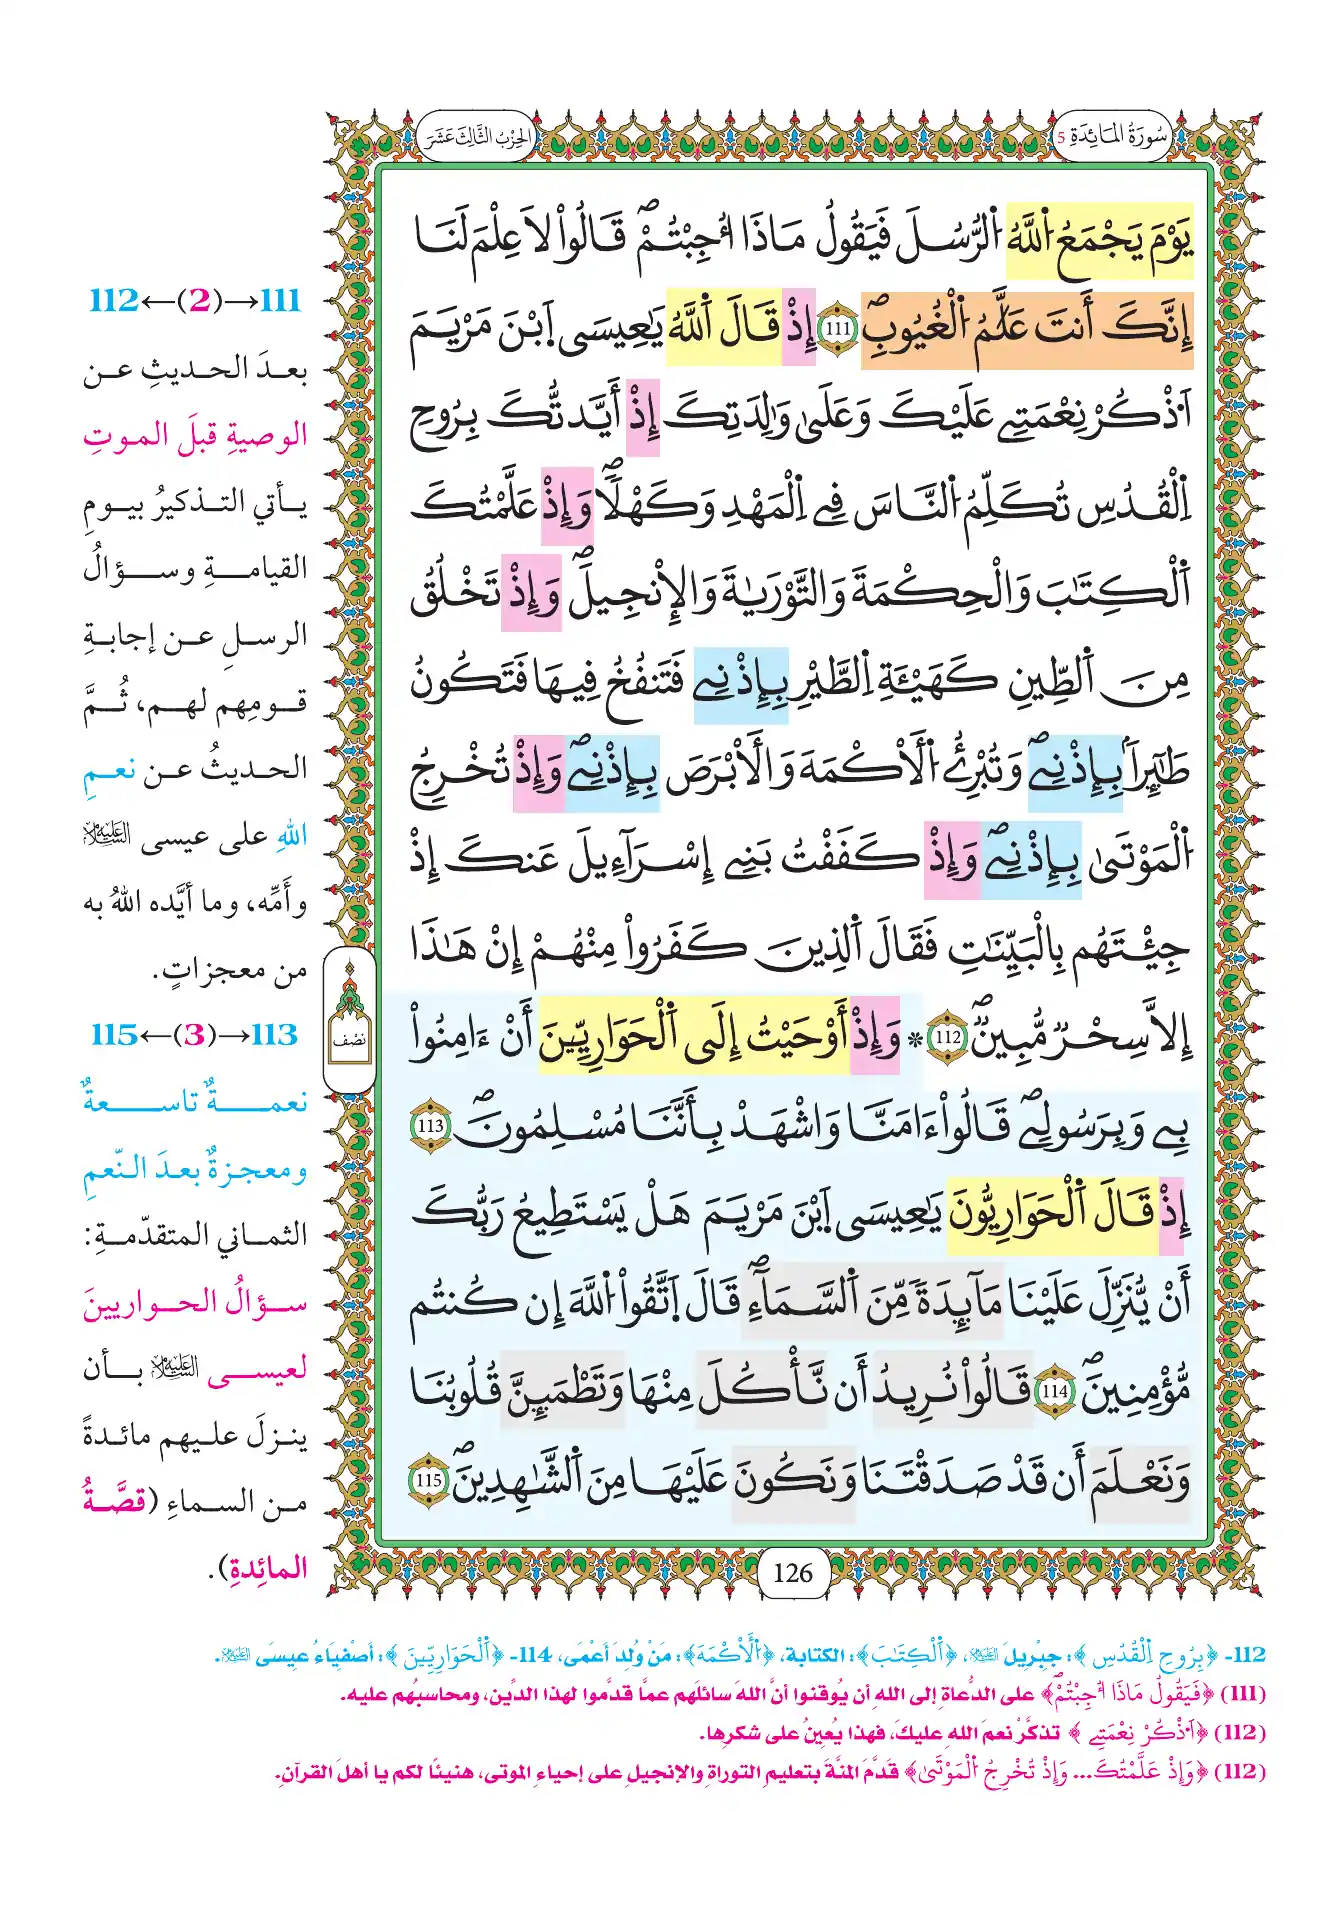 سُورَةُ المَائِدَةِ 5
الحِزْبُ الثَّالِثَ عَشَرَ
يَوْمَ يَجْمَعُ اُللَّهُ اُلرُّسُلَ فَيَقُولُ مَاذَا أُجِبْتُمْۖ قَالُواْ لَا عِلْمَ لَنَا
إِنَّكَ أَنتَ عَلَّٰمُ اُلْغُيُوبِۖ 111 إِذْ قَالَ اَللَّهُ يَٰعِيسَى اَبْنَ مَرْيَمَ
اَذْكُرْ نِعْمَتِے عَلَيْكَ وَعَلَىٰ وَٰلِدَتِكَ إِذْ أَيَّدتُّكَ بِرُوحِ
اِلْقُدُسِ تُكَلِّمُ اُلنَّاسَ فِے اِلْمَهْدِ وَكَهْلاٗۖ وَإِذْ عَلَّمْتُكَ
اَلْكِتَٰبَ وَالْحِكْمَةَ وَالتَّوْرَيٰةَ وَالْإِنْجِيلَۖ وَإِذْ تَخْلُقُ
مِنَ اَلطِّينِ كَهَيْـَٔةِ اِلطَّيْرِ بِإِذْنِے فَتَنفُخُ فِيهَا فَتَكُونُ
طَٰٓئِراَۢ بِإِذْنِےۖ وَتُبْرِئُ اُلْأَكْمَهَ وَالْأَبْرَصَ بِإِذْنِےۖ وَإِذْ تُخْرِجُ
اُلْمَوْتَىٰ بِإِذْنِےۖ وَإِذْ كَفَفْتُ بَنِے إِسْرَآءِيلَ عَنكَ إِذْ
جِئْتَهُم بِالْبَيِّنَٰتِ فَقَالَ اَلذِينَ كَفَرُواْ مِنْهُمْ إِنْ هَٰذَا
إِلَّا سِحْرٞ مُّبِينٞۖ 112 * وَإِذْ أَوْحَيْتُ إِلَى اَلْحَوَارِيِّـۧنَ أَنْ ءَامِنُواْ
بِے وَبِرَسُولِےۖ قَالُواْ ءَامَنَّا وَاشْهَدْ بِأَنَّنَا مُسْلِمُونَۖ 113
إِذْ قَالَ اَلْحَوَارِيُّونَ يَٰعِيسَى اَبْنَ مَرْيَمَ هَلْ يَسْتَطِيعُ رَبُّكَ
أَنْ يُّنَزِّلَ عَلَيْنَا مَآئِدَةٗ مِّنَ اَلسَّمَآءِۖ قَالَ اَتَّقُواْ اُللَّهَ إِن كُنتُم
مُّؤْمِنِينَۖ 114 قَالُواْ نُرِيدُ أَن نَّأْكُلَ مِنْهَا وَتَطْمَئِنَّ قُلُوبُنَا
وَنَعْلَمَ أَن قَدْ صَدَقْتَنَا وَنَكُونَ عَلَيْهَا مِنَ اَلشَّٰهِدِينَۖ 115
نصف
126
111→(2)←112
بعدَ الحديثِ عن
الوصيةِ قبلَ الموتِ
يأتي التذكيرُ بيومِ
القيامةِ وسؤالُ
الرسلِ عن إجابةِ
قومِهم لهم، ثُمَّ
الحديثُ عن نعمِ
اللهِ على عيسى عليه السلام
وأُمِّه، وما أيَّده اللهُ به
من معجزاتٍ.
113→(3)←115
نعمةٌ تاسعةٌ
ومعجزةٌ بعدَ النّعمِ
الثماني المتقدّمةِ:
سؤالُ الحواريينَ
لعيسى عليه السلام بأن
ينزلَ عليهم مائدةً
من السماءِ (قصَّةُ
المائِدةِ).
112- ﴿بِرُوحِ اِلْقُدُسِ﴾: جِبْرِيلَ عليه السلام، ﴿اَلْكِتَٰبَ﴾: الكتابة، ﴿اُلْأَكْمَهَ﴾: مَنْ وُلِدَ أعْمَى، 114- ﴿اَلْحَوَارِيِّينَ﴾: أصْفِيَاءُ عِيسَى عليه السلام.
(111) ﴿فَيَقُولُ مَاذَا أُجِبْتُمْۖ﴾ على الدُّعاةِ إلى اللهِ أن يُوقنوا أنَّ اللهَ سائلَهم عمَّا قدَّموا لهذا الدِّين، ومحاسبُهم عليه.
(112) ﴿اَذْكُرْ نِعْمَتِے﴾ تذكَّرْ نعمَ اللهِ عليكَ، فهذا يُعينُ على شكرِها.
(112) ﴿وَإِذْ عَلَّمْتُكَ... وَإِذْ تُخْرِجُ اُلْمَوْتَىٰ﴾ قَدَّمَ المنَّةَ بتعليمِ التوراةِ والإنجيلِ على إحياءِ الموتى، هنيئًا لكم يا أهلَ القرآنِ.